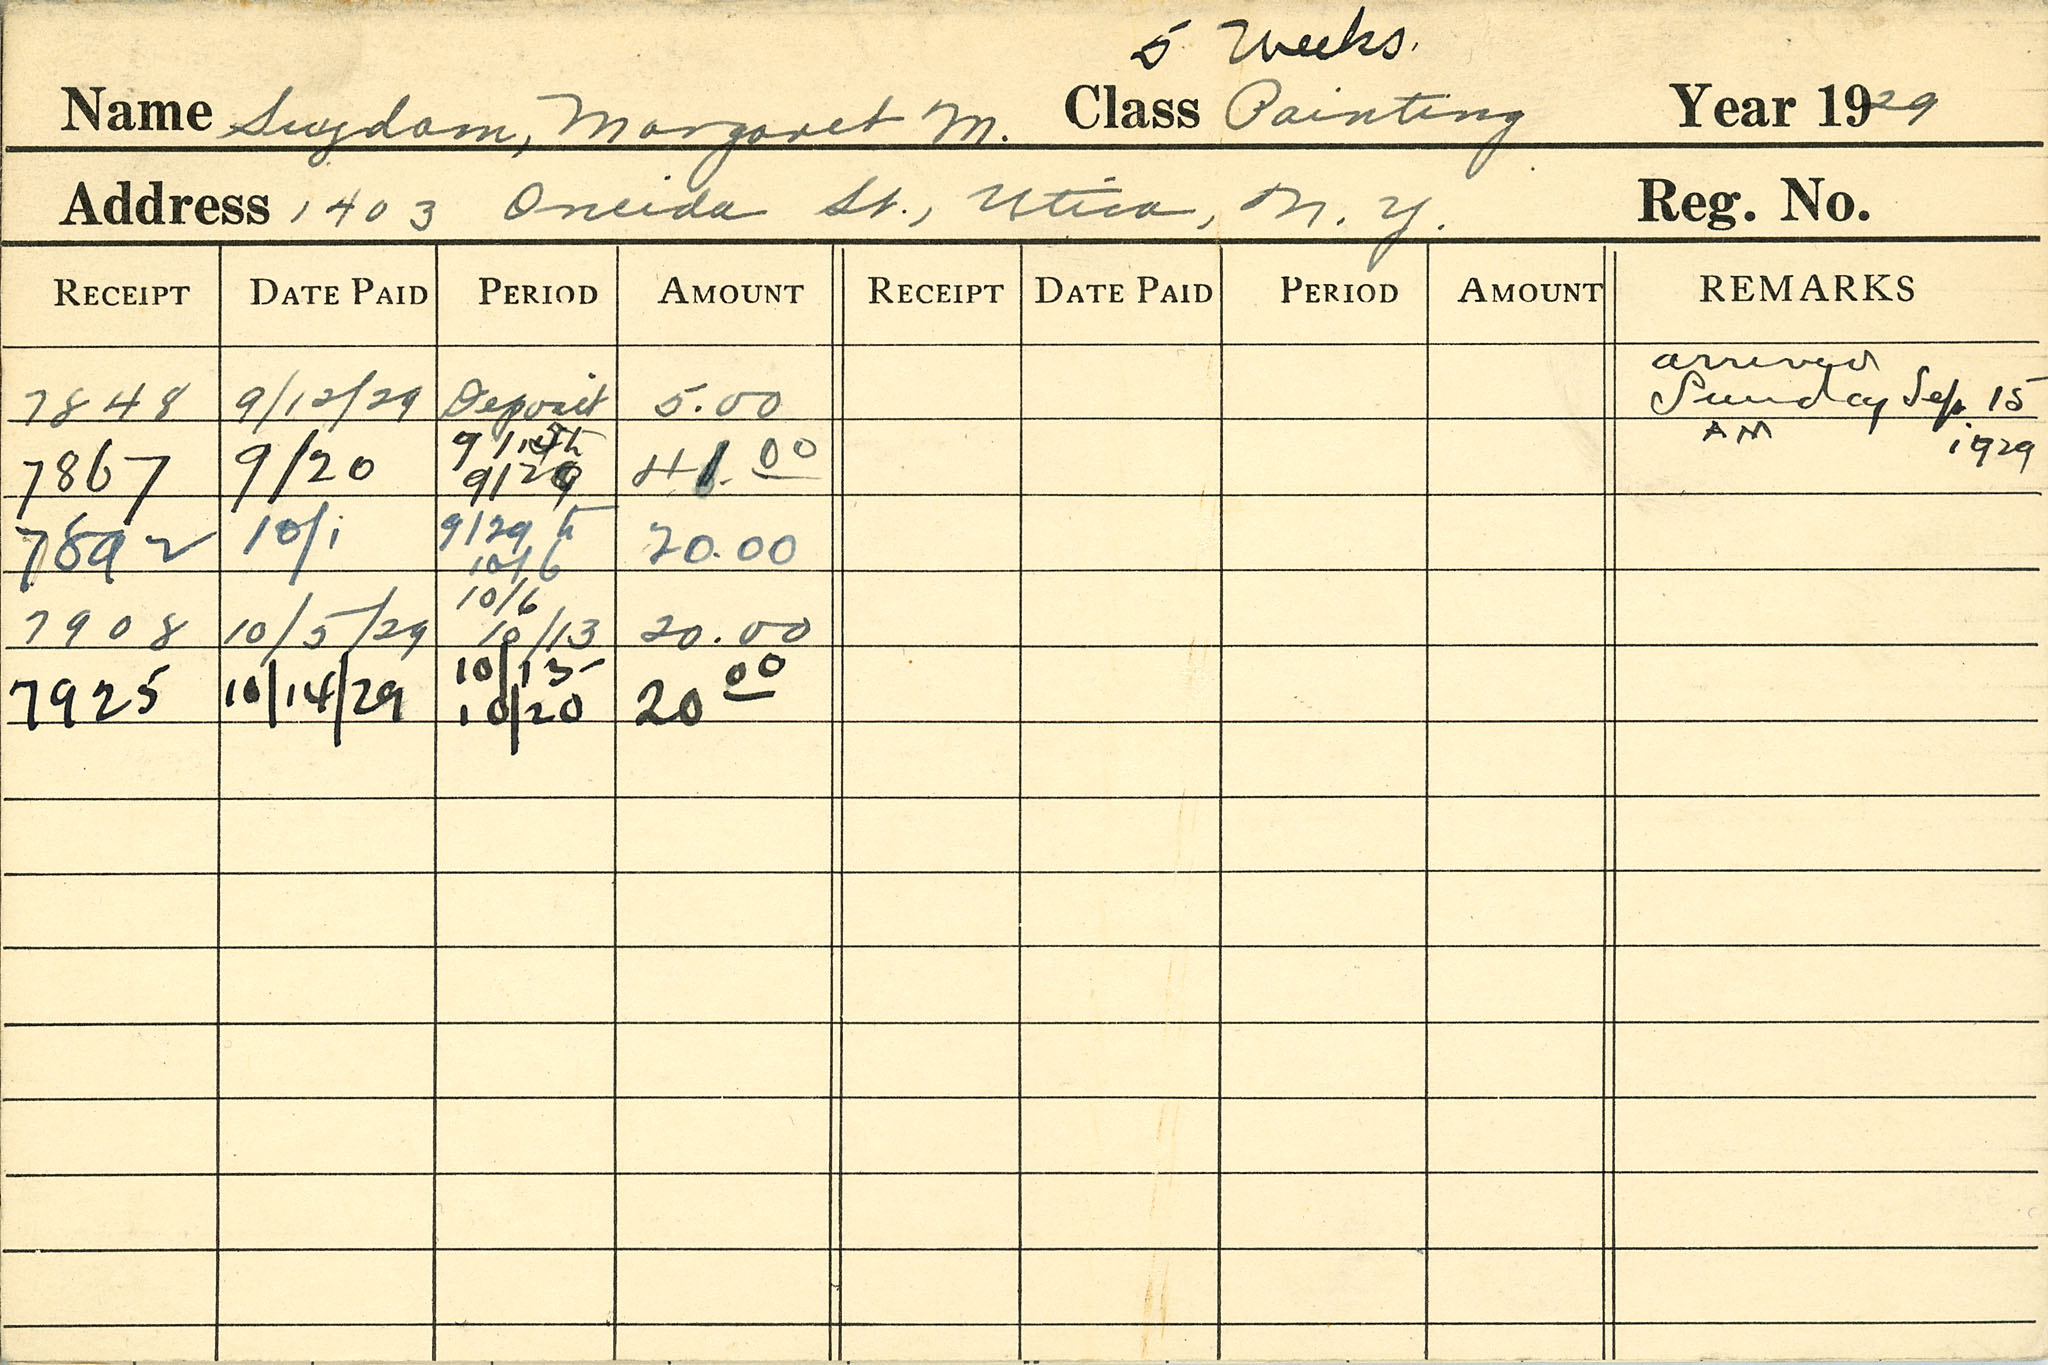 5 Weeks.
Name Suydam, Margaret M. Class Painting Year 1929
Address 1403 Oneida St., Utica, N. Y. Reg. No.
RECEIPT DATE PAID PERIOD AMOUNT RECEIPT DATE PAID PERIOD AMOUNT REMARKS
arrived
7848 9/12/29 Deposit 5.00 Sunday Sep. 15
AM 1929
9/15 to
7867 9/20 9/29 41.00
9/29 to
7892 10/1 10/6 20.00
10/6
7908 10/5/29 10/13 20.00
10/13-
7925 10/14/29 10/20 20 00